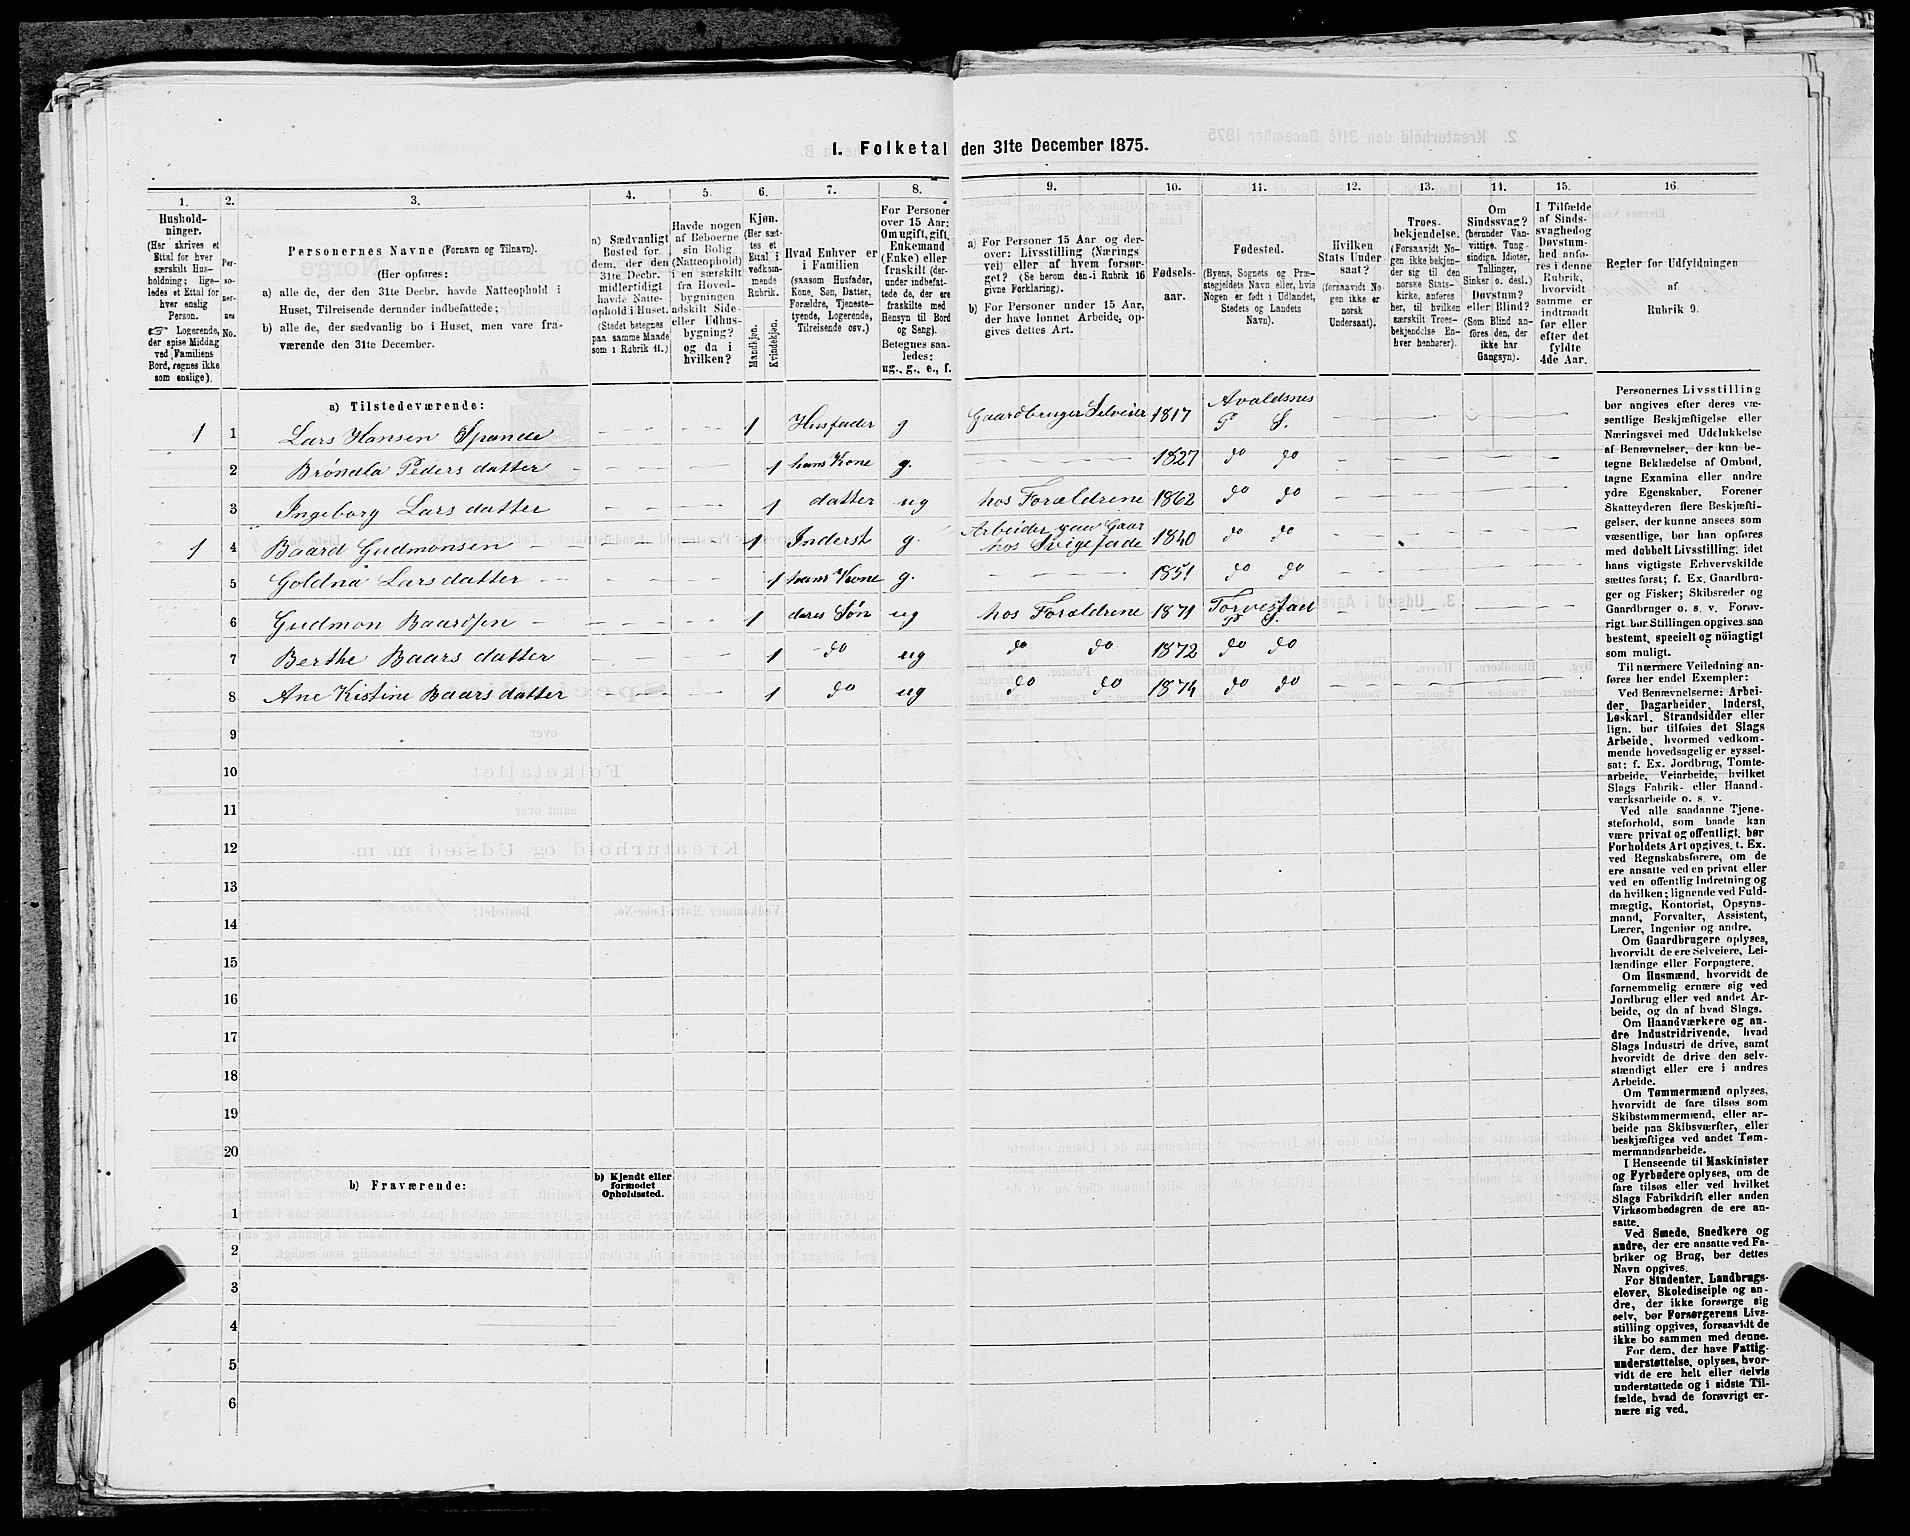 1. Folketal den 31te December 1875.
1. 2. 3. 4. 5. 6. 7. 8. 9. 10. 11. 12. 13. 14. 15. 16.
Hushold-
ninger.
(Her skrives et
Ettal for hver
særskilt Hus-
holdning; lige-
ledes et Ettal for
hver enslig
Person.
☞ Logerende,
der spise Middag
ved Familiens
Bord, regnes ikke
som enslige).
Per-
so-
ner-
nes
No.
Personernes Navne (Fornavn og Tilnavn).
(Her opføres:
a) alle de, der den 31te Decbr. havde Natteophold i
Huset, Tilreisende derunder indbefattede;
b) alle de, der sædvanlig bo i Huset, men vare fra-
værende den 31te December.
a) Sædvanligt
Bosted for
dem, der den
31te Decbr.
midlertidigt
havde Natte-
ophold i Huset.
(Stedet betegnes
paa samme Maade
som i Rubrik 11.)
Havde nogen
af Beboerne
sin Bolig
(Natteophold)
i en særskilt
fra Hoved-
bygningen
adskilt Side-
eller Udhus-
bygning?
og da i
hvilken?
Kjøn.
(Her sæt-
tes et
Ettal i
vedkom-
mende
Rubrik.
Mandkjøn.
Kvindekjøn.
Hvad Enhver er
i Familien
(saasom Husfader,
Kone, Søn, Datter,
Forældre, Tjeneste-
tyende, Logerende,
Tilreisende osv.)
For Personer
over 15 Aar:
Om ugift, gift,
Enkemand
(Enke) eller
fraskilt (der-
under indbefat-
tede de, der ere
fraskilte med
Hensyn til Bord
og Seng).
Betegnes saa-
ledes:
ug., g., e., f.
a) For Personer 15 Aar og der-
over: Livsstilling (Nærings
vei) eller af hvem forsør-
get? (Se herom den i Rubrik 16
givne Forklaring).
b) For Personer under 15 Aar,
der have lønnet Arbeide, op-
gives dettes Art.
Fødsels-
aar.
Fødested.
(Byens, Sognets og Præ-
stegjeldets Navn eller, hvis
Nogen er født i Udlandet,
Stedets og Landets
Navn).
Hvilken
Stats Under
saat?
(forsaavidt No
gen ikke er
norsk
Undersaat).
Troes-
bekjendelse.
(Forsaavidt No-
gen ikke bekjen-
der sig til den
norske Stats-
kirke, anføres
her, til hvilken
særskilt Troes-
bekjendelse En-
hver henhører).
Om
Sindssvag?
(herunder Van-
vittige, Tung-
sindige, Idioter,
Tullinger,
Sinker o. desl.)
Døvstum?
eller Blind?
(Som Blind an-
føres den, der
ikke har
Gangsyn).
I Tilfælde
af Sinds-
svaghed og
Døvstum-
hed anfø-
res i denne
Rubrik,
hvorvidt
samme er
indtraadt
før eller
efter det
fyldte
4de Aar.
Regler for Udfyldningen
af
Rubrik 9.
a) Tilstedeværende:
1 1 Lars Hansen Spande 1 Husfader g Gaardbruger Selveier 1817 Avaldsnes P S.
2 Brøndla Peders datter 1 hans Kone g. 1827 do do
3 Ingeborg Lars datter 1 datter ug hos Forældrene 1862 do do
1 4 Baard Gudmonsen 1 Inderst g. Arbeider paa Gaar hos Svigefade 1840 do do
5 Goldna Lars datter 1 hans Kone g. 1851 do do
6 Gudmon Baardsen 1 deres Søn ug hos Forældrene 1871 Torvestad P S.
7 Berthe Baars datter 1 do ug do do 1872 do do
8 Ane Kistine Baars datter 1 do ug do do 1874 do do
9
10
11
12
13
14
15
16
17
18
19
20
b) Fraværende:
b) Kjendt eller
formodet
Opholdssted.
1
2
3
4
5
6
Personernes Livsstilling
bør angives efter deres væ-
sentlige Beskjæftigelse eller
Næringsvei med Udelukkelse
af Benævnelser, der kun be-
tegne Beklædelse af Ombud,
tagne Examina eller andre
ydre Egenskaber. Forener
Skatteyderen flere Beskjæfti-
gelser, der kunne ansees som
væsentlige, bør han opføres
med dobbelt Livsstilling, idet
hans vigtigste Erhvervskilde
sættes først; f. Ex. Gaardbru-
ger og Fisker; Skibsreder og
Gaardbruger o. s. v. Forøv-
rigt bør Stillingen opgives saa
bestemt, specielt og nöiagtigt
som muligt.
Til nærmere Veiledning an-
føres her endel Exempler:
Ved Benævnelserne: Arbei-
der, Dagarbeider, Inderst,
Løskarl, Strandsidder eller
lign. bør tilføies det Slags
Arbeide, hvormed vedkom-
mende hovedsagelig er syssel-
sat; f. Ex. Jordbrug, Tomte-
arbeide, Veiarbeide, hvilket
Slags Fabrik- eller Haand-
værksarbeide o. s. v.
Ved alle saadanne Tjene-
steforhold, som baade kan
være privat og offentligt, bør
Forholdets Art opgives, t. Ex.
ved Regnskabsførere, om de
ere ansatte ved en privat eller
ved en offentlig Indretning og
da hvilken; lignende ved Fuld-
mægtig, Kontorist, Opsyns-
mand, Forvalter, Assistent,
Lærer, Ingeniør og andre.
Om Gaardbrugere oplyses,
hvorvidt de ere Selveiere, Lei-
lændinge eller Forpagtere.
Om Husmænd, hvorvidt de
fornemmelig ernære sig ved
Jordbrug eller ved andet Ar-
beide, og da af hvad Slags.
Om Haandværkere og an-
dre Industridrivende, hvad
Slags Industri de drive, samt
hvorvidt de drive den selv-
stændigt eller ere i andres
Arbeide.
Om Tømmermænd oplyses,
hvorvidt de fare tilsøs som
Skibstømmermænd, eller ar-
beide paa Skibsværfter, eller
beskjæftiges ved andet Tøm-
mermandsarbeide.
I Henseende til Maskinister
og Fyrbødere oplyses, om de
fare tilsøs eller ved hvilket
Slags Fabrikdrift eller anden
Virksombedsgren de ere an-
satte.
Ved Smede, Snedkere og
andre, der ere ansatte ved Fa-
briker og Brug, bør dettes
Navn opgives.
For Studenter, Landbrugs-
elever, Skoledisciple og an-
dre, der ikke forsørge sig
selv, bør Forsørgerens Livs-
stilling opgives, forsaavidt de
ikke bo sammen med denne.
For dem, der have Fattig-
understøttelse, oplyses, hvor-
vidt de ere helt eller delvis
understøttede og i sidste Til-
fælde, hvad de forøvrigt er-
nære sig ved.